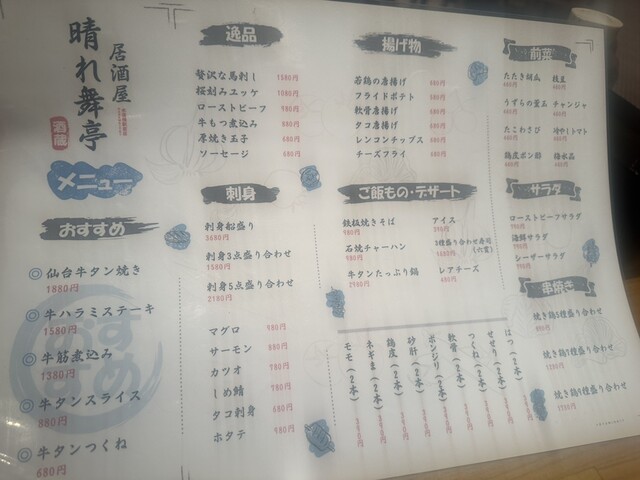 居酒屋
晴れ舞亭
酒蔵
メニュー
おすすめ
◎仙台牛タン焼き
1880円
◎牛ハラミステーキ
1580円
◎牛筋煮込み
1380円
◎牛タンスライス
880円
◎牛タンつくね
680円
逸品
贅沢な馬刺し 1580円
桜刻みユッケ 1080円
ローストビーフ 980円
牛もつ煮込み 980円
厚焼き玉子 680円
ソーセージ 680円
刺身
刺身船盛り
3680円
刺身3点盛り合わせ
1580円
刺身5点盛り合わせ
2180円
マグロ 980円
サーモン 880円
カツオ 780円
しめ鯖 780円
タコ刺身 680円
ホタテ 980円
揚げ物
若鶏の唐揚げ
フライドポテト
軟骨唐揚げ
タコ唐揚げ
レンコンチップス
チーズフライ
ご飯もの・デザート
鉄板焼きそば
980円
石焼チャーハン
980円
牛タンたっぷり鍋
2980円
アイス
3種盛り合わせ寿司
(六貫)
レアチーズ
480円
モモ(2本)
ネギま(2本)
鶏皮(2本)
砂肝(2本)
ボンジリ(2本)
軟骨(2本)
つくね(2本)
せせり(2本)
はつ(2本)
前菜
たたき胡瓜
枝豆
うずらの煮玉
チャンジャ
たこわさび
冷やしトマト
鶏皮ポン酢
サラダ
ローストビーフサラダ
海鮮サラダ
シーザーサラダ
串焼き
焼き鶏5種盛り合わせ
焼き鶏7種盛り合わせ
焼き鶏9種盛り合わせ